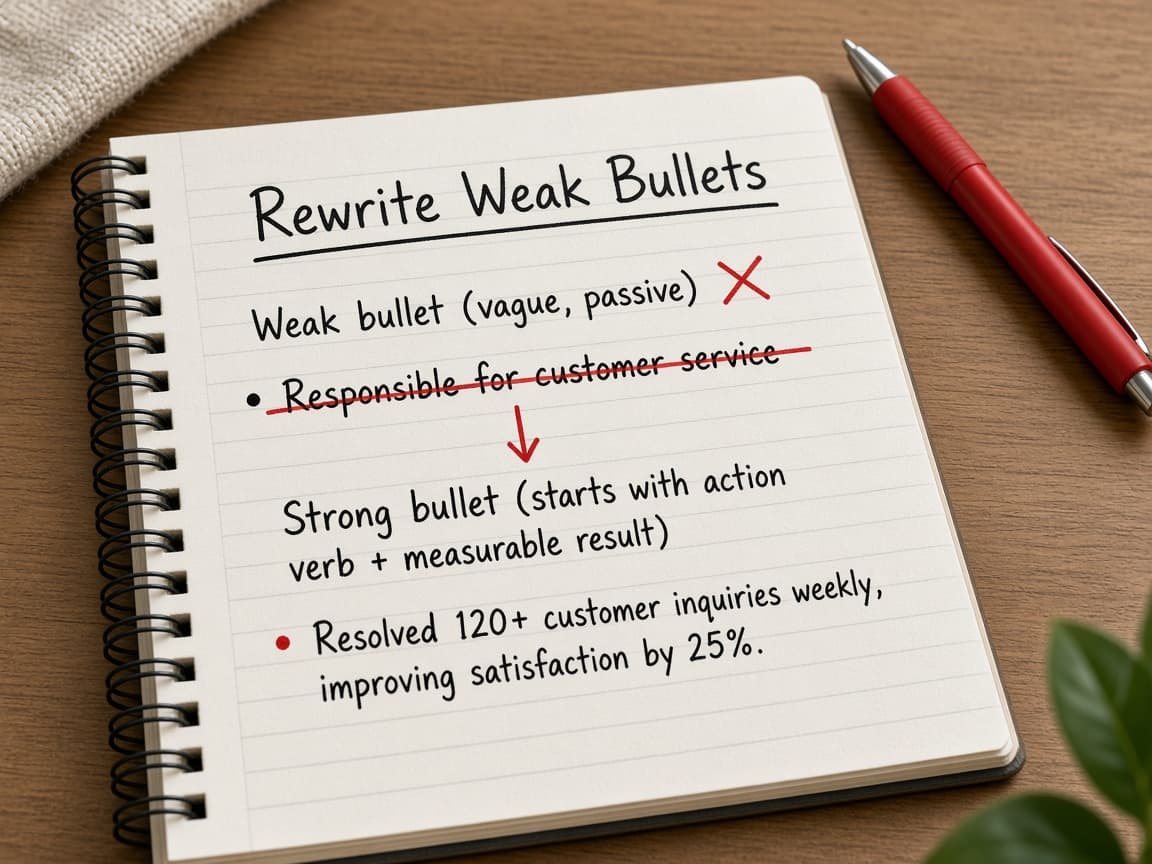 Rewrite Weak Bullets
Weak bullet (vague, passive)
• Responsible for customer service
Strong bullet (starts with action
verb + measurable result)
• Resolved 120+ customer inquiries weekly,
improving satisfaction by 25%.